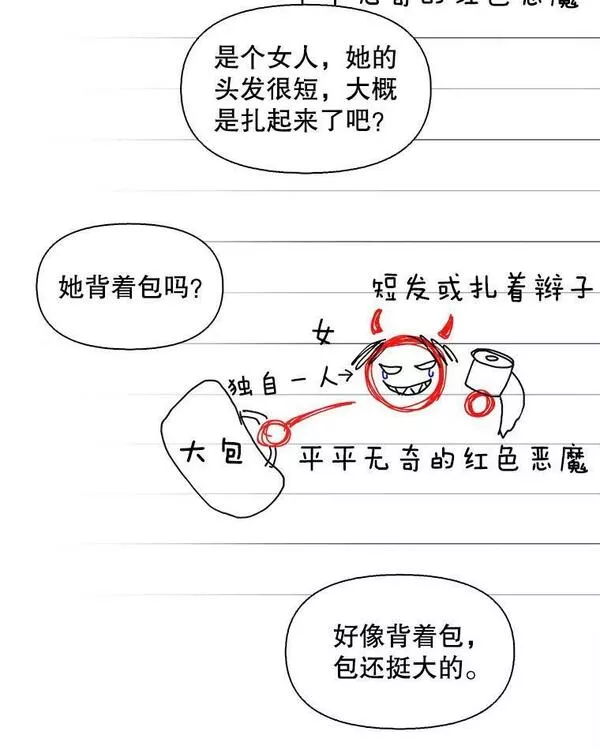 平平无奇的红色恶魔
是个女人，她的
头发很短，大概
是扎起来了吧？
她背着包吗？
短发或扎着辫子
女
独自一人→
大包
平平无奇的红色恶魔
好像背着包，
包还挺大的。